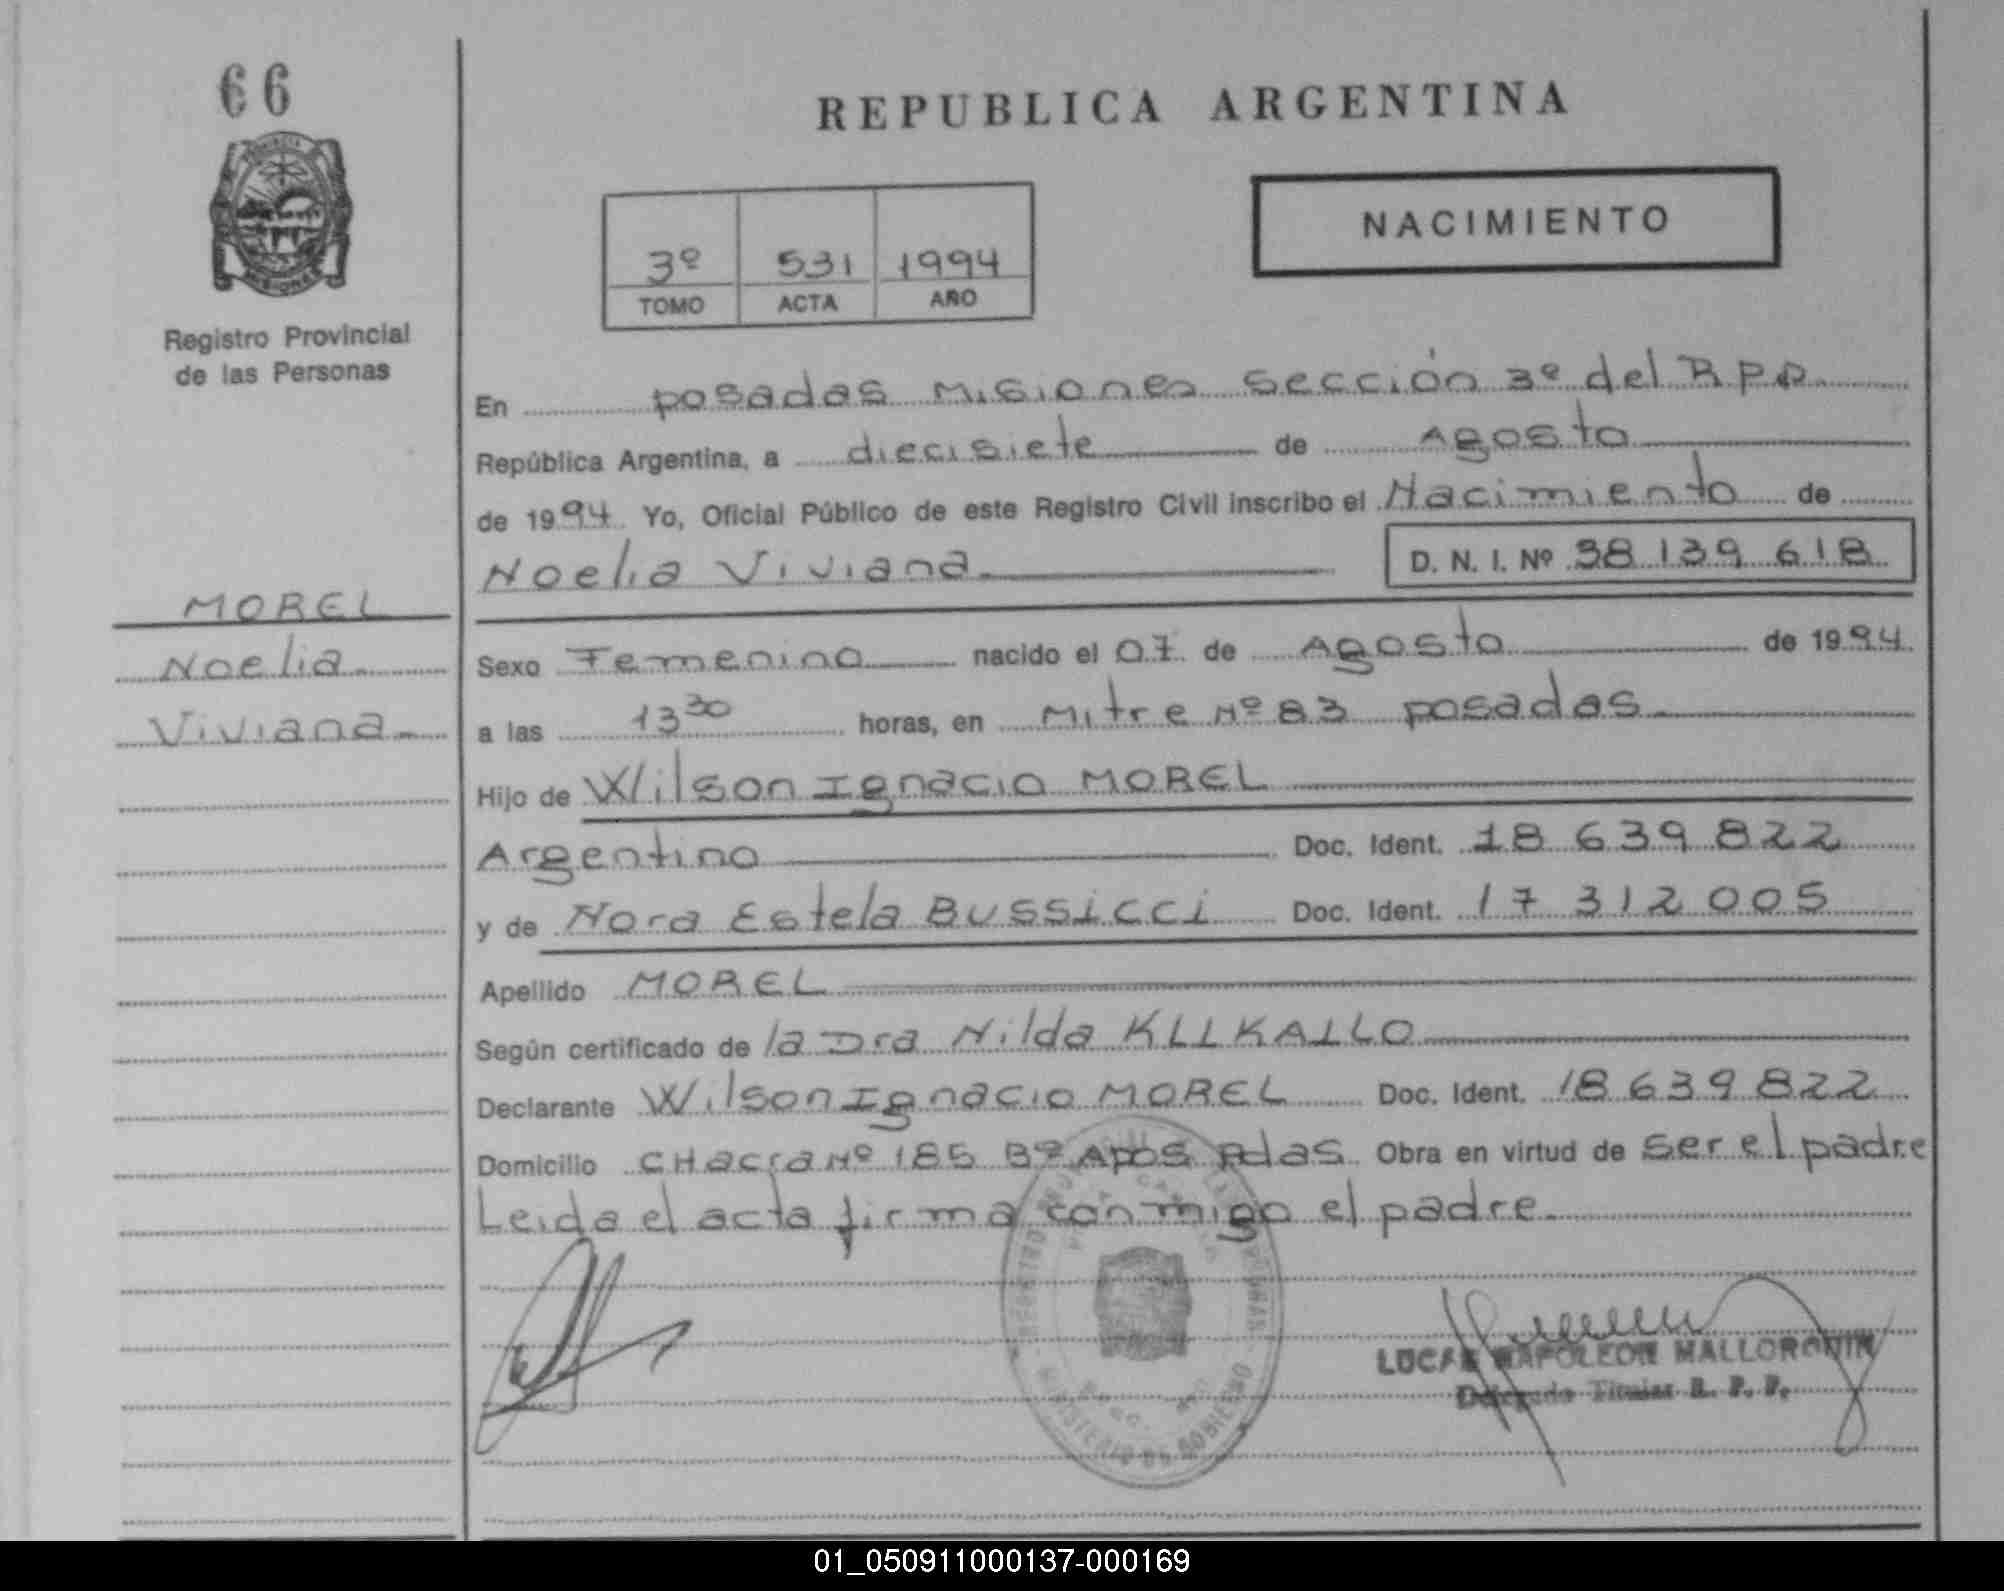 66
REPUBLICA ARGENTINA
NACIMIENTO
3º 531 1994
TOMO ACTA AÑO
Registro Provincial
de las Personas
En posadas Misiones sección 3º del R P P
República Argentina, a diecisiete de Agosto
de 1994 Yo, Oficial Público de este Registro Civil inscribo el Nacimiento de
Noelia Viviana D. N. I. Nº 38 139 618
MOREL
Noelia
Viviana
Sexo Femenino nacido el 07 de Agosto de 1994
a las 13 30 horas, en Mitre Nº 83 posadas
Hijo de Wilson Ignacio MOREL
Argentino Doc. Ident. 18 639 822
y de Nora Estela BUSSICCI Doc. Ident. 17 312 005
Apellido MOREL
Según certificado de la Dra Nilda
Declarante Wilson Ignacio MOREL Doc. Ident. 18 639 822
Domicilio CHacra Nº 185 Bº Apos Pdas Obra en virtud de ser el padre
Leida el acta firma conmigo el padre.
MINISTERIO DE GOBIERNO
LUCAS NAPOLEON MALLORQUIN
Delegado Titular R. P. P.
01_050911000137-000169